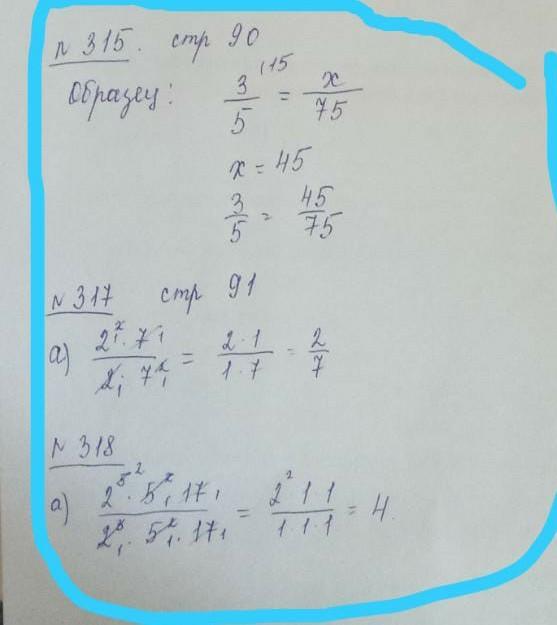 n 315. стр 90
Образец: 3/5 ,15 = x/75
x = 45
3/5 = 45/75
n 317 стр 91
а) 2² · 7 / 2 · 7² = 2 · 1 / 1 · 7 = 2/7
n 318
а) 2⁵ · 5² · 17 / 2³ · 5² · 17 = 2² · 1 · 1 / 1 · 1 · 1 = 4.